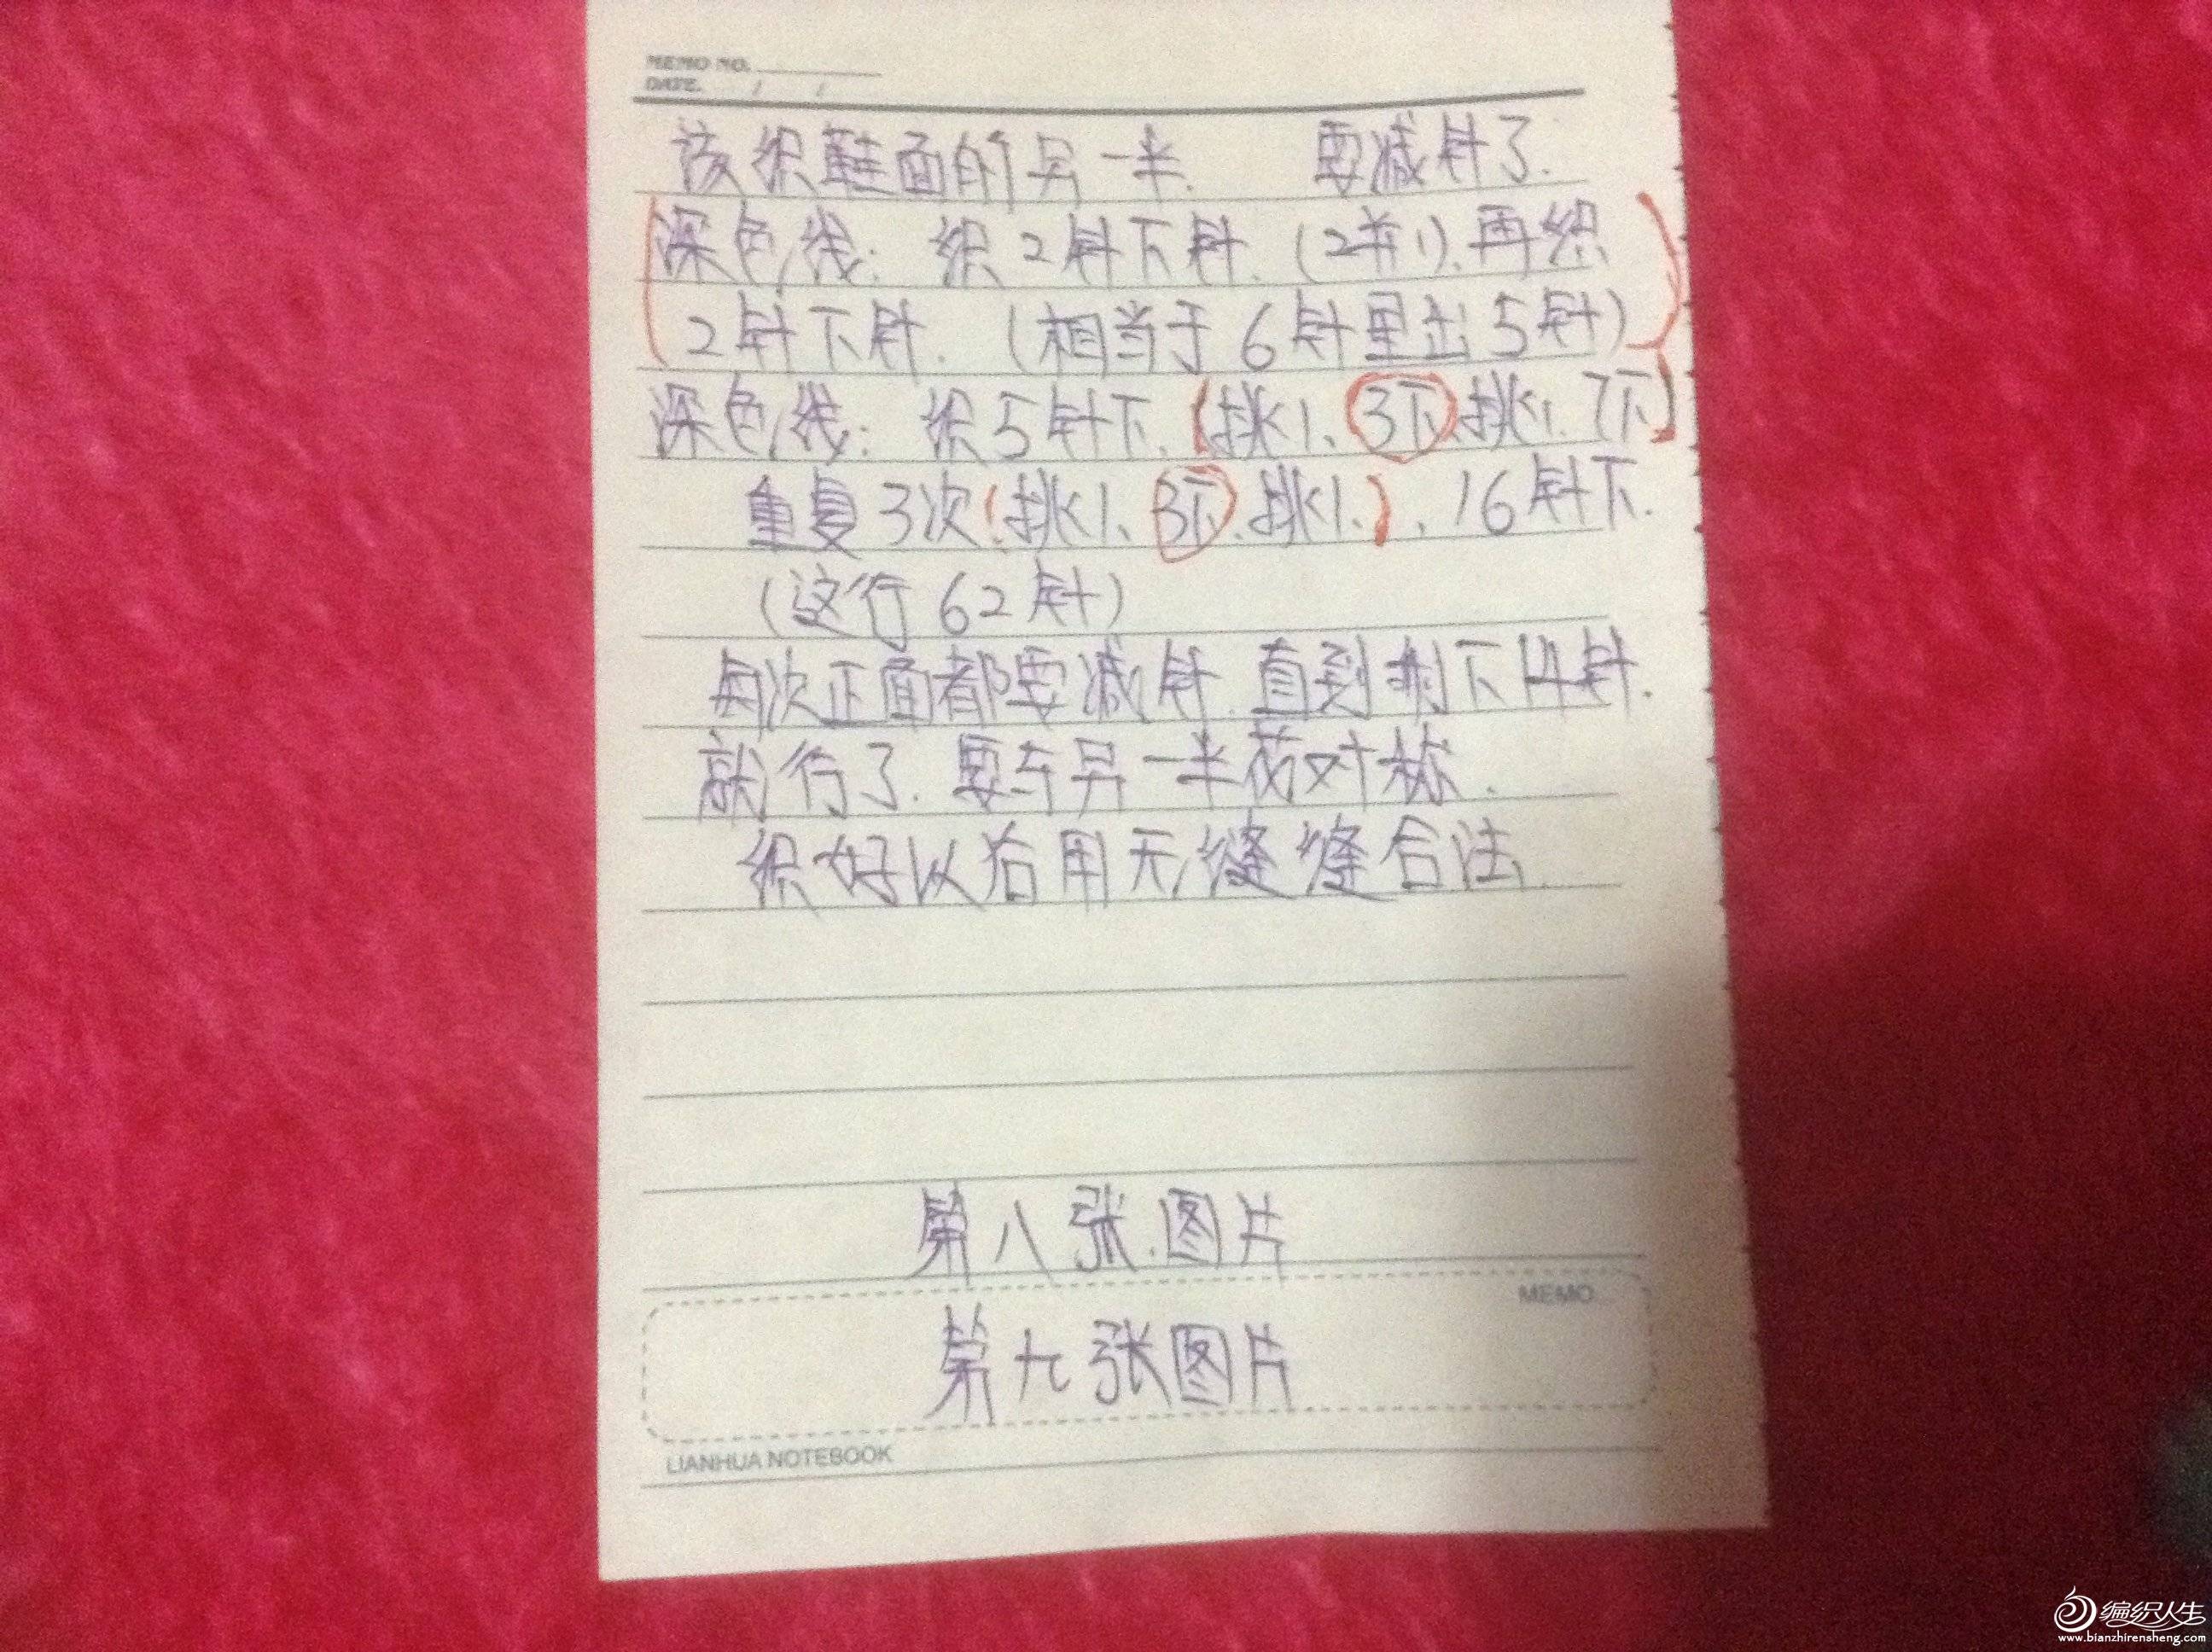 MEMO NO.
DATE. / /
该织鞋面的另一半. 要减针了.
深色线: 织2针下针.(2并1).再织
2针下针.(相当于6针里出5针)
深色线: 织5针下.(挑1、3下、挑1.7下)
重复3次(挑1、3下、挑1.)、16针下.
(这行62针)
每次正面都要减针.直到剩下14针.
就行了.要与另一半花对称.
织好以后用无缝缝合法.
第八张.图片
MEMO
第九张图片
LIANHUA NOTEBOOK
编织人生
www.bianzhirensheng.com